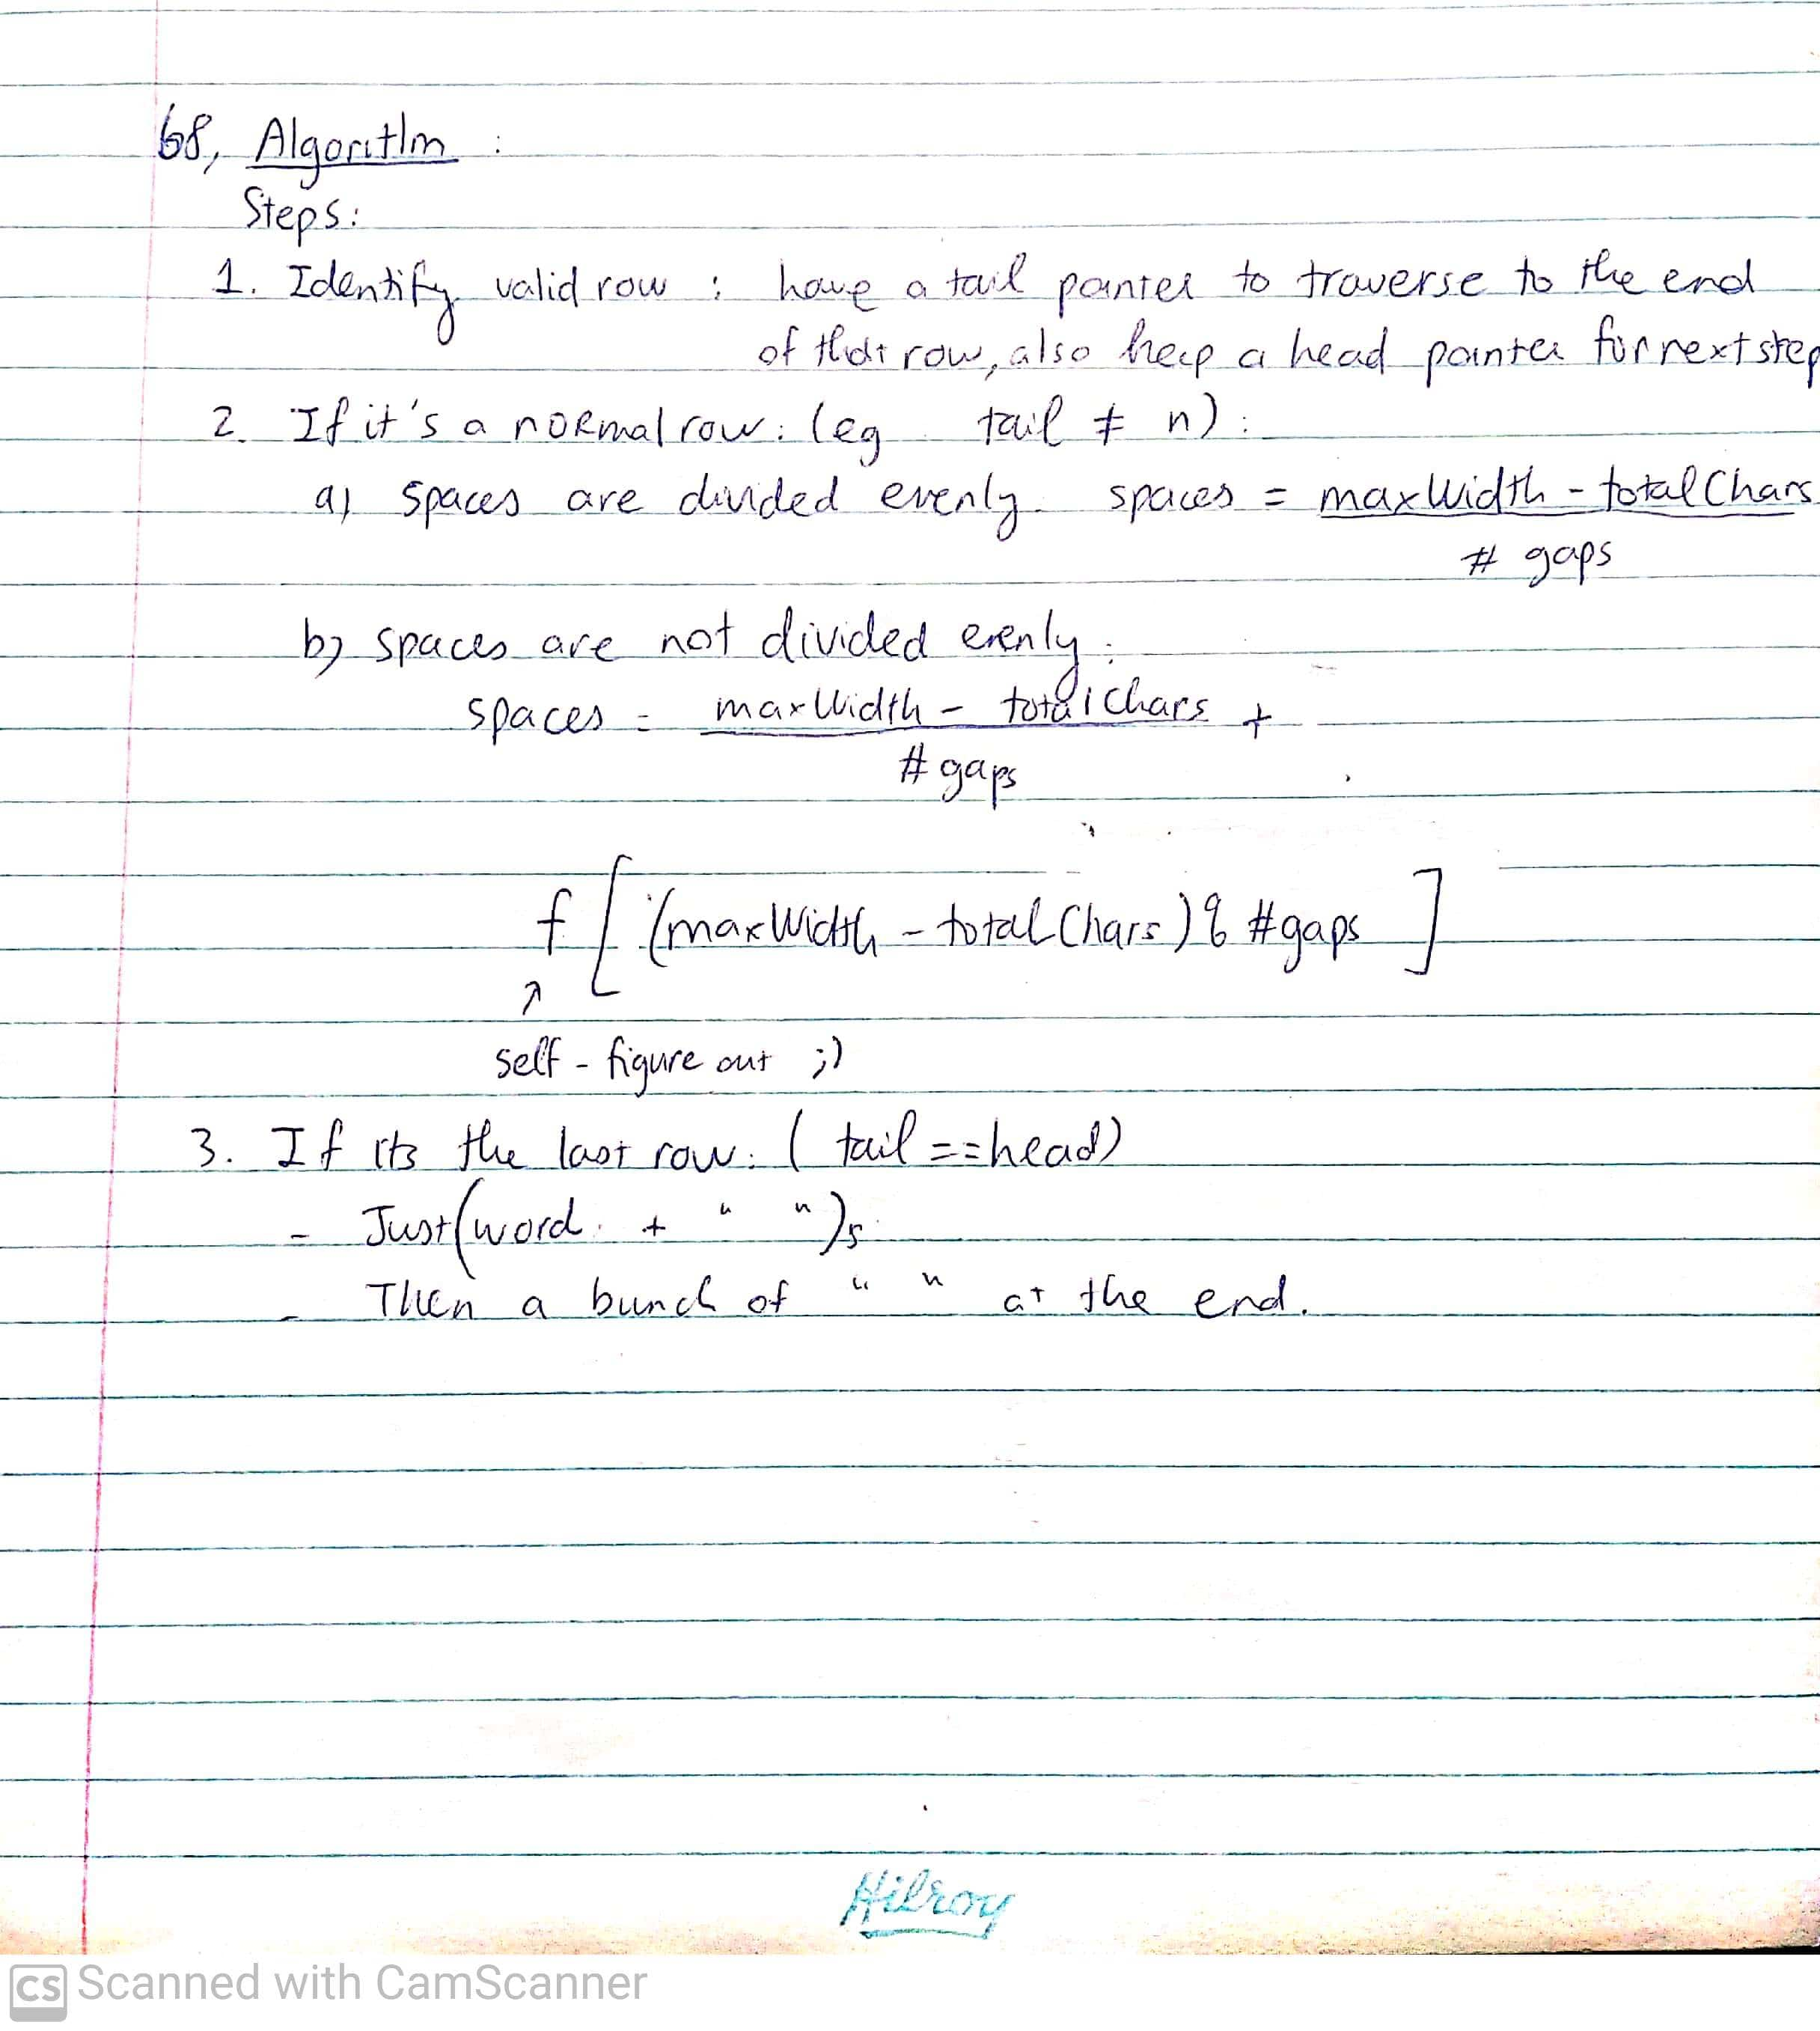 68, Algorithm :
Steps:
1. Identify valid row : have a tail pointer to traverse to the end
of that row, also keep a head pointer for next step
2. If it's a normal row: (eg tail ≠ n) :
a) spaces are divided evenly. spaces = maxWidth - totalChars
# gaps
b) spaces are not divided evenly :
spaces = maxWidth - totalChars +
# gaps
f [ (maxWidth - totalChars) % #gaps ]
↗
self - figure out ;)
3. If its the last row: ( tail == head)
- Just (word + " ")s
- Then a bunch of " " at the end.
Hilroy
CS Scanned with CamScanner